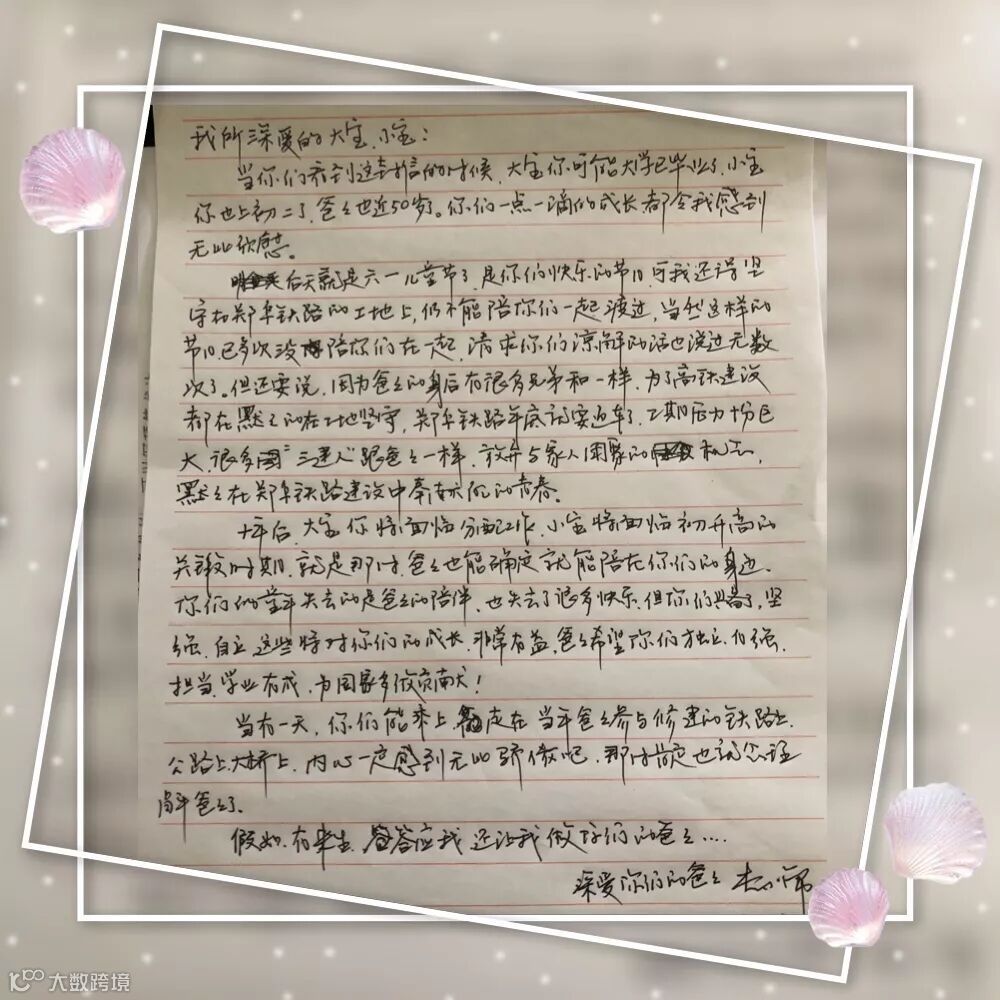 我所深爱的大宝、小宝：
当你们看到这封信的时候，大宝你可能大学已毕业了，小宝
你也上初二了，爸爸也近50岁。你们一点一滴的成长都令我感到
无比欣慰。
后天就是六一儿童节了，是你们快乐的节日，可我还得坚
守在郑阜铁路的工地上，仍不能陪你们一起渡过，当然这样的
节日已多次没陪你们在一起，请求你们谅解的话也说过无数
次了。但还要说，因为爸爸的身后有很多兄弟和一样，为了高铁建设
都在默默的在工地坚守，郑阜铁路年底就要通车了，工期压力十份巨
大，很多"三建人"跟爸爸一样，放弃与家人团聚的机会，
默默在郑阜铁路建设中奉献他的青春。
十年后，大宝你将面临分配工作，小宝将面临初升高的
关键时期，就是那时，爸爸也能确定就能陪在你们的身边。
你们的童年失去的是爸爸的陪伴，也失去了很多快乐，但你们学会了，坚
强、自立，这些将对你们的成长，非常有益，爸爸希望你们独立、自强、
担当，学业有成，为国家多做贡献！
当有一天，你们能乘上走在当年爸爸参与修建的铁路上、
公路上、大桥上，内心一定感到无比骄傲吧，那时肯定也就会理
解爸爸了。
假如有来生，答应我还让我做你们的爸爸....
深爱你们的爸爸
大数跨境